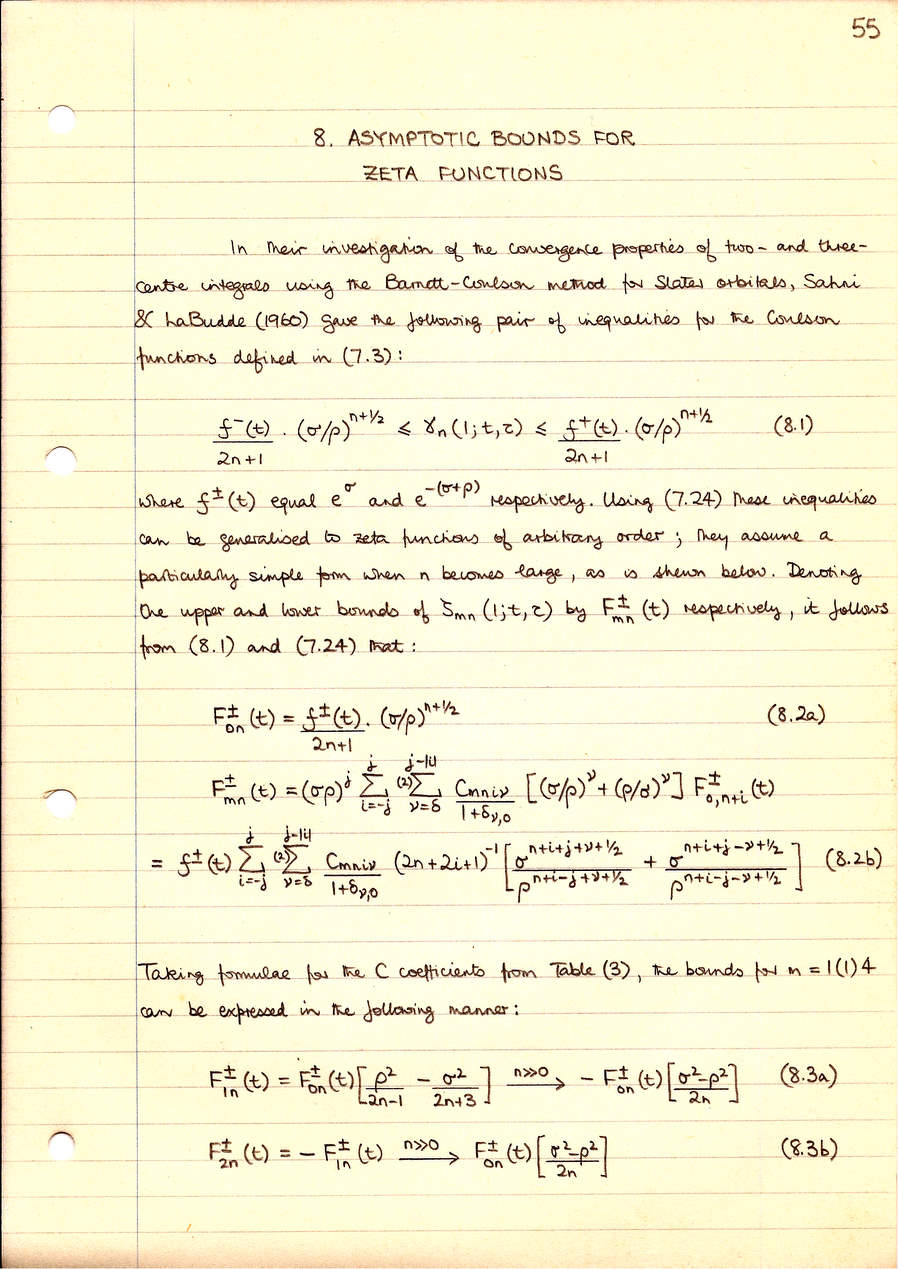 55
8. ASYMPTOTIC BOUNDS FOR
ZETA FUNCTIONS
In their investigation of the convergence properties of two- and three-
centre integrals using the Barnett-Coulson method for Slater orbitals, Sahni
& LaBudde (1960) gave the following pair of inequalities for the Coulson
functions defined in (7.3):
f⁻(t)/(2n+1) . (σ/ρ)^(n+1/2) ≤ γₙ(1;t,τ) ≤ f⁺(t)/(2n+1) . (σ/ρ)^(n+1/2) (8.1)
where f^±(t) equal e^σ and e^-(σ+ρ) respectively. Using (7.24) these inequalities
can be generalised to zeta functions of arbitrary order; they assume a
particularly simple form when n becomes large, as is shewn below. Denoting
the upper and lower bounds of ζ_mn(1;t,τ) by F^±_mn(t) respectively, it follows
from (8.1) and (7.24) that:
F^±_0n(t) = f^±(t)/(2n+1) . (σ/ρ)^(n+1/2) (8.2a)
F^±_mn(t) = (σρ)^j Σ_{i=-j}^{j} ⁽²⁾Σ_{ν=δ}^{j-|i|} C_mniν/(1+δ_ν,0) [(σ/ρ)^ν + (ρ/σ)^ν] F^±_0,n+i(t)
= f^±(t) Σ_{i=-j}^{j} ⁽²⁾Σ_{ν=δ}^{j-|i|} C_mniν/(1+δ_ν,0) (2n+2i+1)^-1 [σ^(n+i+j+ν+1/2)/ρ^(n+i-j+ν+1/2) + σ^(n+i+j-ν+1/2)/ρ^(n+i-j-ν+1/2)] (8.2b)
Taking formulae for the C coefficients from Table (3), the bounds for m = 1(1)4
can be expressed in the following manner:
F^±_1n(t) = F^±_0n(t)[ρ²/(2n-1) - σ²/(2n+3)] n≫0→ - F^±_0n(t)[(σ²-ρ²)/2n] (8.3a)
F^±_2n(t) = - F^±_1n(t) n≫0→ F^±_0n(t)[(σ²-ρ²)/2n] (8.3b)